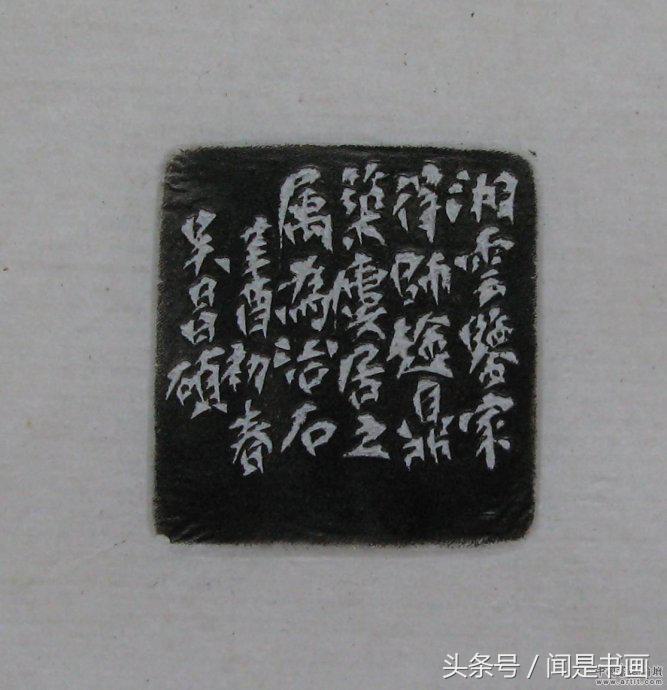 湘雲鑒家
得師趛鼎
築廔居之
屬為治石
辛酉初春
吳昌碩
头条号 / 闻是书画